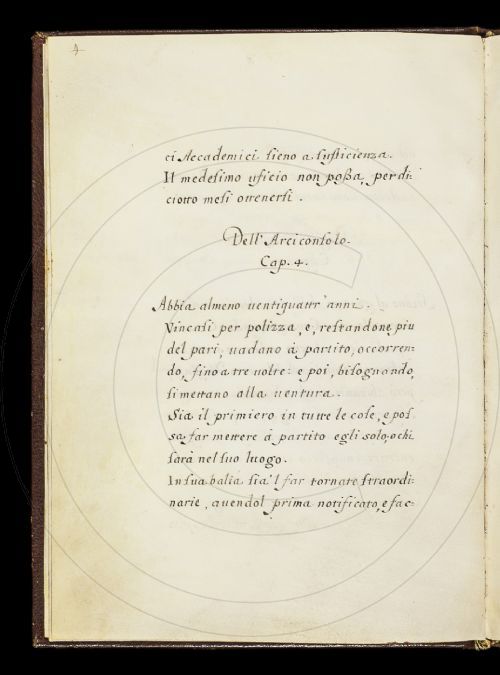 4
ci Accademici sieno a sufficienza.
Il medesimo uficio non possa, per di:
ciotto mesi ottenersi.
Dell'Arciconsolo.
Cap. 4.
Abbia almeno uentiquattr'anni.
Vincasi per polizza, e, restandone piu
del pari, uadano à partito, occorren:
do, fino a tre uolte: e poi, bisognando,
si mettano alla uentura.
Sia il primiero in tutte le cose, e pos:
sa far mettere à partito egli solo, o chi
sarà nel suo luogo.
In sua balia sia'l far tornate straordi:
narie, auendol prima notificato, e fac: